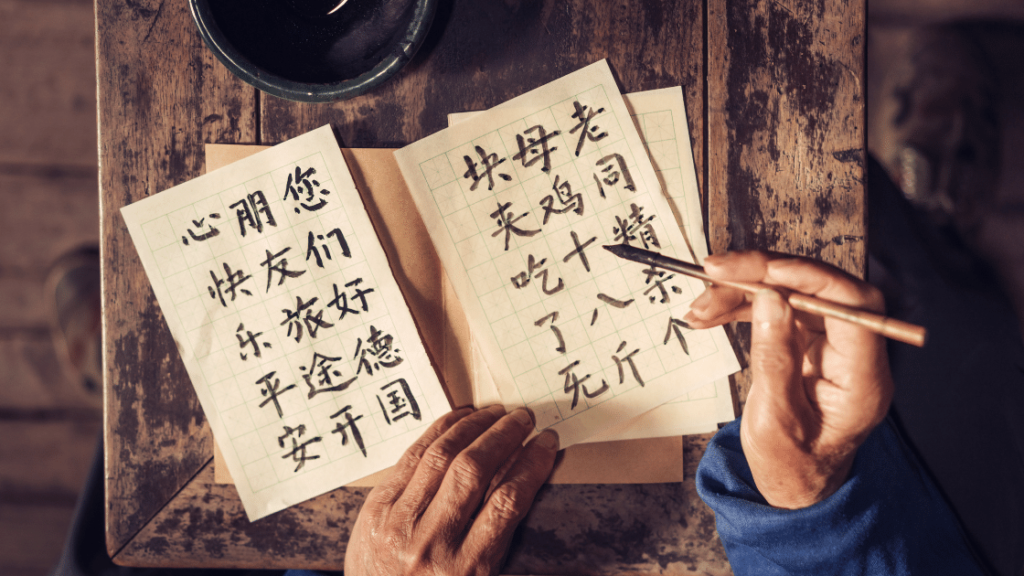 您们好德国
朋友旅途开
心快乐平安
老同精杂个
母鸡十八斤
块夹吃了死